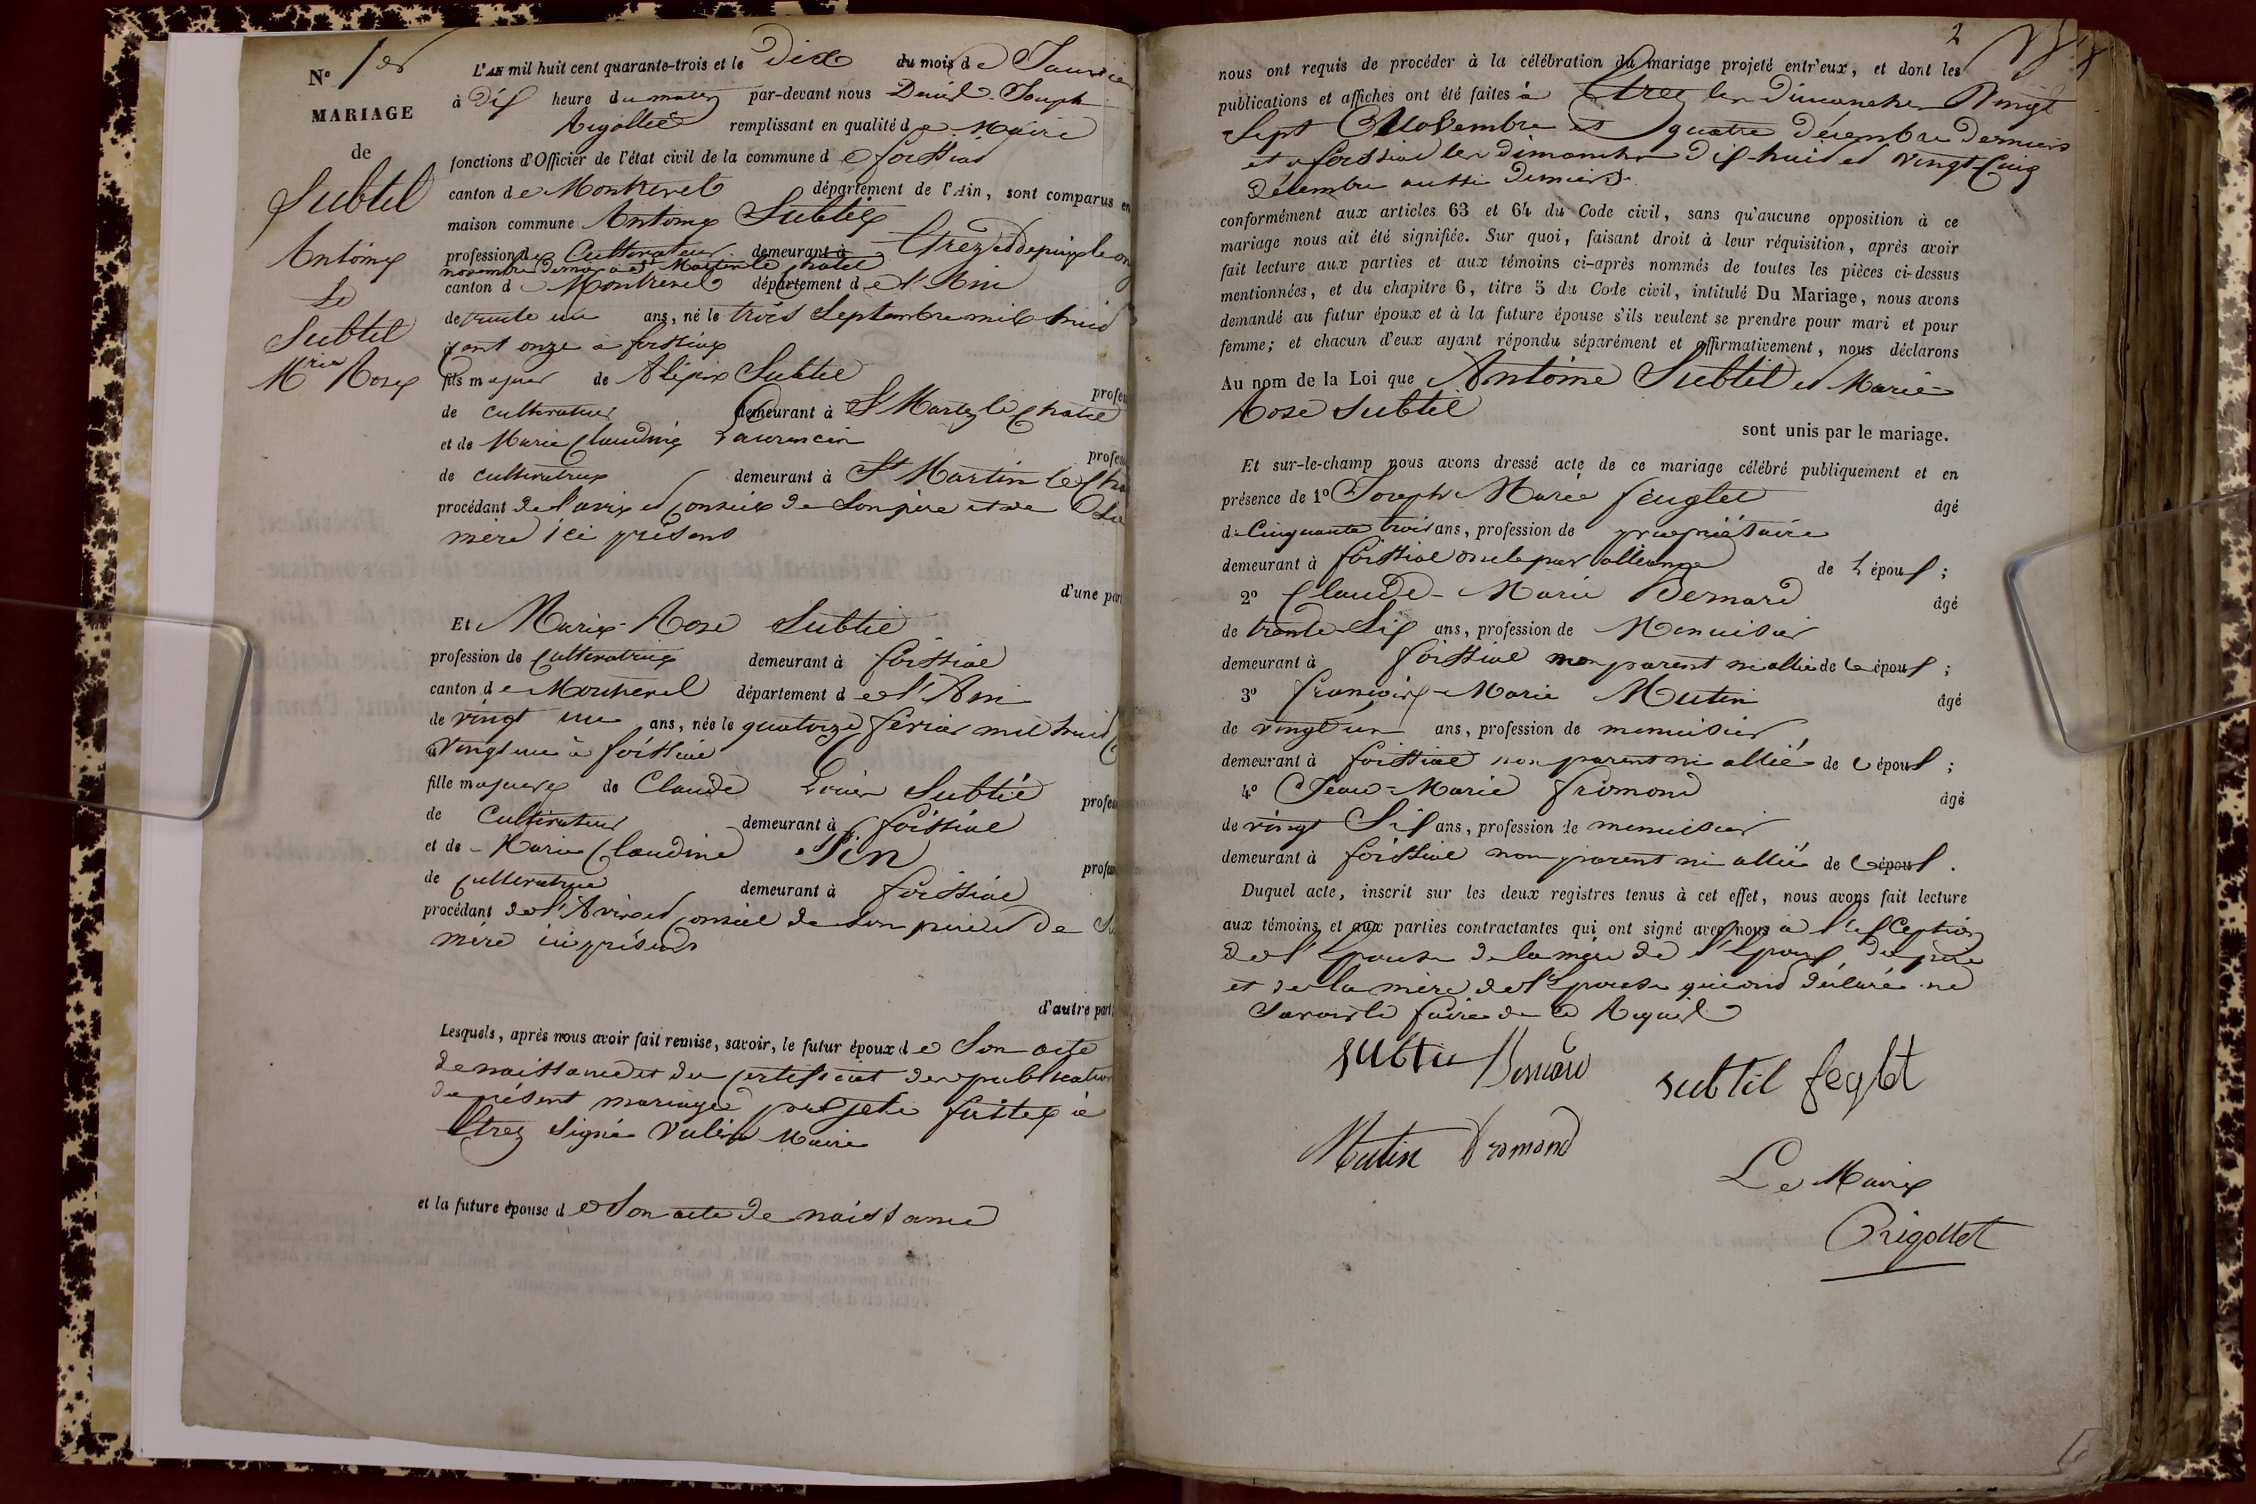 N° 1er
MARIAGE
de
Subtil
Antoine
Et
Subtil
Mrie Rose
L'AN mil huit cent quarante-trois et le Dix du mois de Janvier
à Dix heure du matin par-devant nous David Joseph
Rigollet remplissant en qualité de Maire
fonctions d'Officier de l'état civil de la commune de foissiat
canton de Montrevel département de l'Ain, sont comparus en
maison commune Antoine Subtil
profession de Cultivateur demeurant à Etrez et depuis le onze
novembre dernier à St Martin le Chatel
canton de Montrevel département de l'Ain
de trente un ans, né le trois Septembre mil huit
cent onze à foissiat
fils majeur de Alexis Subtil profes
de cultivateur demeurant à St Martin le Chatel
et de Marie Claudine Laurencin profes
de cultivatrice demeurant à St Martin le Cha
procédant de l'avis et conseil de son père et de Sa
mère ici présens
d'une part
Et Marie-Rose Subtil
profession de Cultivatrice demeurant à foissiat
canton de Montrevel département de l'Ain
de vingt un ans, née le quatorze février mil huit C
vingt un à foissiat
fille majeure de Claude Louis Subtil profes
de Cultivateur demeurant à foissiat
et de Marie Claudine Pin profes
de Cultivatrice demeurant à foissiat
procédant de l'Avis et Conseil de son père et De Sa
mère ici présens
d'autre part.
Lesquels, après nous avoir fait remise, savoir, le futur époux de Son acte
de naissance et du certificat de publication
du présent mariage projeté faites à
Etrez Signé Maire
et la future épouse de Son acte de naissance
2
nous ont requis de procéder à la célébration du mariage projeté entr'eux, et dont les
publications et affiches ont été faites à Etrez les Dimanches Vingt
Sept Novembre et quatre Décembre Derniers
et à foissiat les dimanches Dix-huit et Vingt Cinq
Décembre aussi Derniers.
conformément aux articles 63 et 64 du Code civil, sans qu'aucune opposition à ce
mariage nous ait été signifiée. Sur quoi, faisant droit à leur réquisition, après avoir
fait lecture aux parties et aux témoins ci-après nommés de toutes les pièces ci-dessus
mentionnées, et du chapitre 6, titre 5 du Code civil, intitulé Du Mariage, nous avons
demandé au futur époux et à la future épouse s'ils veulent se prendre pour mari et pour
femme; et chacun d'eux ayant répondu séparément et affirmativement, nous déclarons
Au nom de la Loi que Antoine Subtil et Marie
Rose Subtil
sont unis par le mariage.
Et sur-le-champ nous avons dressé acte de ce mariage célébré publiquement et en
présence de 1° Joseph Marie feuglet âgé
de Cinquante trois ans, profession de propriétaire
demeurant à foissiat oncle par alliance de l'époux;
2° Claude-Marie Bernard âgé
de trente Six ans, profession de Menuisier
demeurant à foissiat non parent ni allié de l'époux;
3° françois-Marie Mutin âgé
de vingt un ans, profession de menuisier
demeurant à foissiat non parent ni allié de l'époux;
4° Jean-Marie fromond âgé
de vingt Six ans, profession de menuisier
demeurant à foissiat non parent ni allié de l'époux.
Duquel acte, inscrit sur les deux registres tenus à cet effet, nous avons fait lecture
aux témoins et aux parties contractantes qui ont signé avec nous à l'exception
de l'Epouse de la mère de l'Epoux du père
et de la mère de l'Epouse qui ont déclaré ne
Savoir le faire de ce Requis
subtil Bernard subtil feglet
Mutin fromond
Le Maire
Rigollet